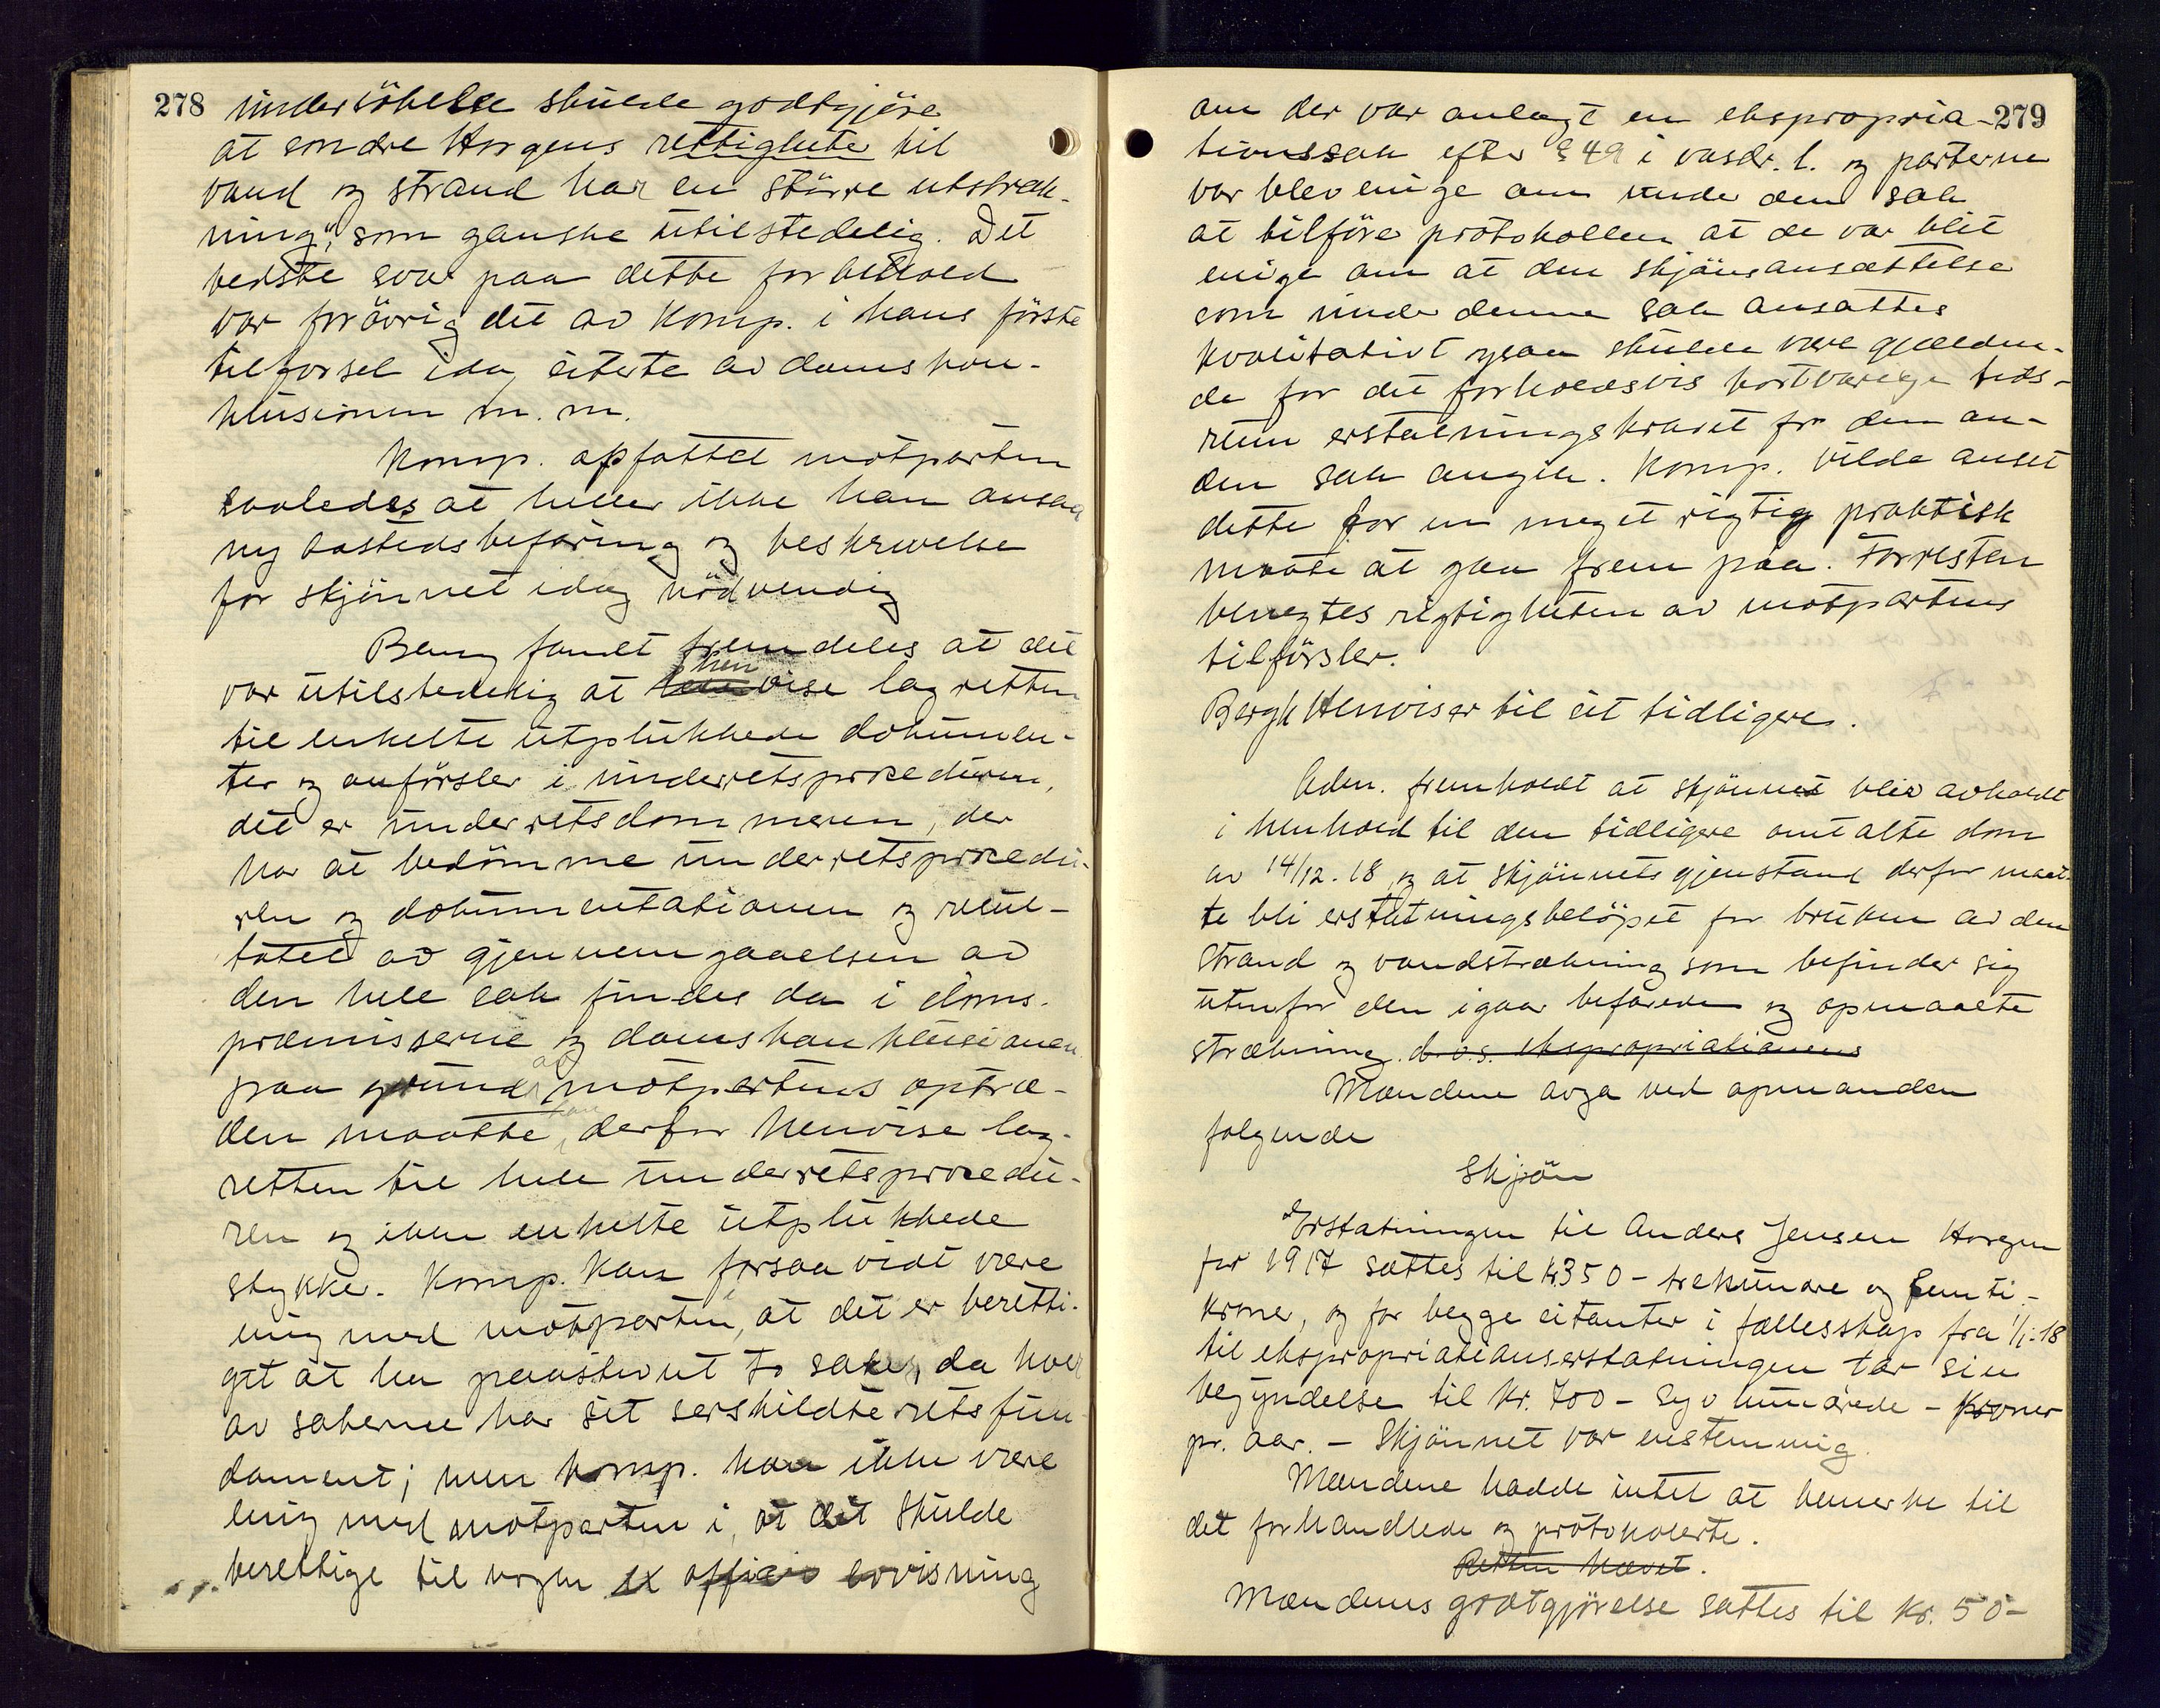 278
undersökelse skulde godtgjöre
at søndre Horgens rettigheter til
vand og strand har en större utstræk-
ning", som ganske utilstedelig. Det
bedste svar paa dette forbehold
var forövrig det av Komp. i hans förste
tilförsel idag citerte av domskon-
klusionen m. m.
Komp. opfattet motparten
saaledes at heller ikke han ansaa
ny aastedsbefaring og beskrivelse
for skjönnet idag nödvendig
Berg fandt fremdeles at det
var utilstedelig at henvise lagretten
til enkelte utplukkede dokumen-
ter og anförsler i underretsproceduren,
det er underretsdommeren, der
har at bedömme underretsprocedu-
ren og dokumentationen og resul-
tatet av gjennemgaaelsen av
den hele sak findes da i doms-
præmisserne og domskonklusionen.
paa grund av motpartens optræ-
den maatte han derfor henvise lag-
retten til hele underretsprocedu-
ren og ikke enkelte utplukkede
stykker. Komp. kan forsaavidt være
enig med motparten, at det er beretti-
get at ha paastevnt to saker, da hver
av sakerne har sit særskildte retsfun-
dament; men komp. kan ikke være
enig med motparten i, at det skulde
berettige til nogen ex officio avvisning
279
om der var anlagt en ekspropria-
tionssak efter § 49 i vasdr. l. og parterne
var blev enige om under den sak
at tilföre protokollen at de var blit
enige om at den skjönsansættelse
som under denne sak ansattes
kvalitativt ogsaa skulde være gjælden-
de for det forholdsvis kortvarige tids-
rum erstatningskravet for den an-
den sak angik. Komp. vilde anset
dette for en meget rigtig praktisk
maate at gaa frem paa. Forresten
benegtes rigtigheten av motpartens
tilförsler.
Bergh Henviser til sit tidligere.
Adm. fremholdt at skjönnet blev avholdt
i henhold til den tidligere omtalte dom
av 14/12. 18 og at skjönnets gjenstand derfor maat-
te bli erstatningsbelöpet for bruken av den
strand og vandstrækning som befinder sig
utenfor den igaar befarede og opmaalte
strækning. d.v.s. ekspropriationens
Mændene avga ved opmanden
følgende
Skjön
Erstatningen til Anders Jensen Horgen
for 1917 sættes til kr 350 - trehundre og femti -
kroner, og for begge citanter i fællesskap fra 1/1-18
til ekspropriationserstatningen tar sin
begyndelse til kr. 700 - syv hundrede - kroner
pr. aar. - Skjönnet var enstemmig.
Mændene hadde intet at bemerke til
det forhandlede og protokollerte.
Retten hævet.
Mændenes godtgjörelse sattes til kr. 50-